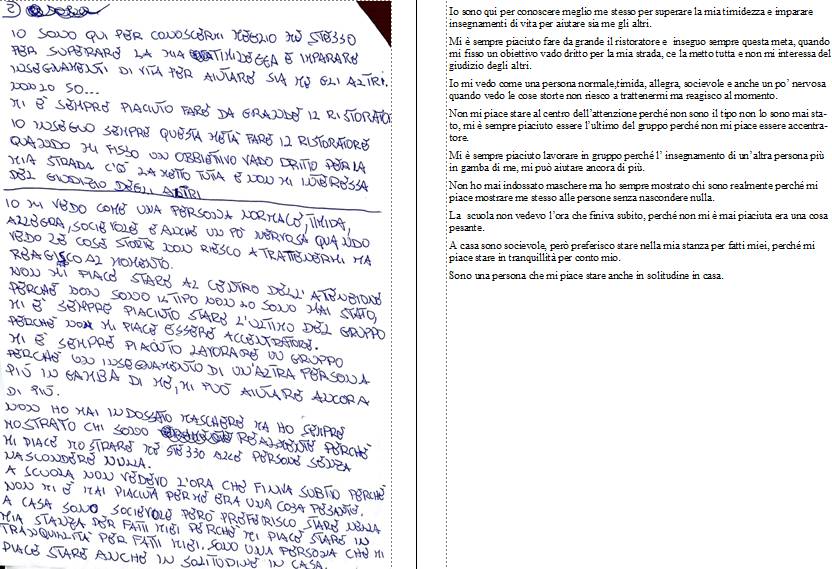 2)
IO SONO QUI PER CONOSCERMI MEGLIO ME STESSO
PER SUPERARE LA MIA TIMIDEZZA E IMPARARE
INSEGNAMENTI DI VITA PER AIUTARE SIA ME GLI ALTRI.
NON LO SO...
MI È SEMPRE PIACIUTO FARE DA GRANDE IL RISTORATORE
IO INSEGUO SEMPRE QUESTA META FARE IL RISTORATORE
QUANDO MI FISSO UN OBBIETTIVO VADO DRITTO PER LA
MIA STRADA C'È LA METTO TUTA E NON MI INTERESSA
DEL GIUDIZIO DEGLI ALTRI
IO MI VEDO COME UNA PERSONA NORMALE, TIMIDA,
ALLEGRA, SOCIEVOLE E ANCHE UN PÒ NERVOSA QUANDO
VEDO LE COSE STORTE NON RIESCO A TRATTENERMI MA
REAGISCO AL MOMENTO.
NON MI PIACE STARE AL CENTRO DELL'ATTENZIONE
PERCHÈ NON SONO IL TIPO NON LO SONO MAI STATO,
MI È SEMPRE PIACIUTO STARE L'ULTIMO DEL GRUPPO
PERCHÈ NON MI PIACE ESSERE ACCENTRATORE.
MI È SEMPRE PIACIUTO LAVORARE IN GRUPPO
PERCHÈ UN INSEGNAMENTO DI UN'ALTRA PERSONA
PIÙ IN GAMBA DI ME, MI PUÒ AIUTARE ANCORA
DI PIÙ.
NON HO MAI INDOSSATO MASCHERE MA HO SEMPRE
MOSTRATO CHI SONO REALMENTE PERCHÈ
MI PIACE MOSTRARE ME STESSO ALLE PERSONE SENZA
NASCONDERE NULLA.
A SCUOLA NON VEDEVO L'ORA CHE FINIVA SUBITO PERCHÈ
NON MI È MAI PIACIUTA PER ME ERA UNA COSA PESANTE.
A CASA SONO SOCIEVOLE PERÒ PREFERISCO STARE NELLA
MIA STANZA PER FATTI MIEI PERCHÈ MI PIACE STARE IN
TRANQUILLITÀ PER FATTI MIEI. SONO UNA PERSONA CHE MI
PIACE STARE ANCHE IN SOLITUDINE IN CASA.
Io sono qui per conoscere meglio me stesso per superare la mia timidezza e imparare
insegnamenti di vita per aiutare sia me gli altri.
Mi è sempre piaciuto fare da grande il ristoratore e inseguo sempre questa meta, quando
mi fisso un obiettivo vado dritto per la mia strada, ce la metto tutta e non mi interessa del
giudizio degli altri.
Io mi vedo come una persona normale,timida, allegra, socievole e anche un po' nervosa
quando vedo le cose storte non riesco a trattenermi ma reagisco al momento.
Non mi piace stare al centro dell'attenzione perché non sono il tipo non lo sono mai sta-
to, mi è sempre piaciuto essere l'ultimo del gruppo perché non mi piace essere accentra-
tore.
Mi è sempre piaciuto lavorare in gruppo perché l' insegnamento di un'altra persona più
in gamba di me, mi può aiutare ancora di più.
Non ho mai indossato maschere ma ho sempre mostrato chi sono realmente perché mi
piace mostrare me stesso alle persone senza nascondere nulla.
La scuola non vedevo l'ora che finiva subito, perché non mi è mai piaciuta era una cosa
pesante.
A casa sono socievole, però preferisco stare nella mia stanza per fatti miei, perché mi
piace stare in tranquillità per conto mio.
Sono una persona che mi piace stare anche in solitudine in casa.